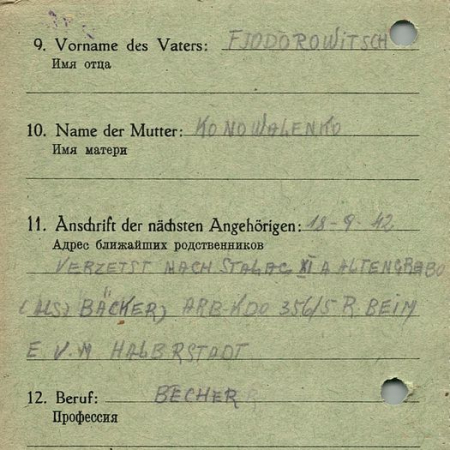 9. Vorname des Vaters: FJODOROWITSCH
Имя отца
10. Name der Mutter: KONOWALENKO
Имя матери
11. Anschrift der nächsten Angehörigen: 18-9-42
Адрес ближайших родственников
VERZETST NACH STALAG XI A ALTENGRABO
(ALS) BÄCKER) ARB-KDO 356/5 R. BEIM
E.V.M HALBRSTADT
12. Beruf: BECHER
Профессия